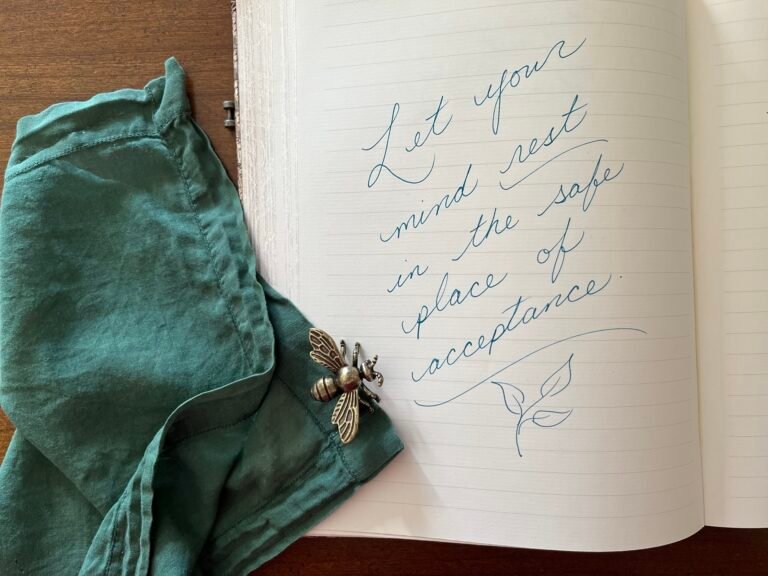 Let your
mind rest
in the safe
place of
acceptance.